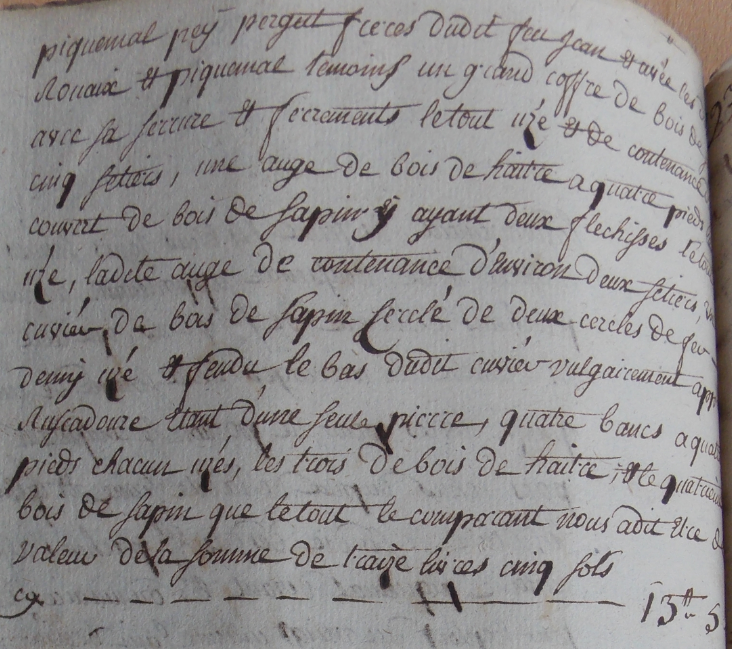 piquemal pey pergut freres dudit feu jean & avée les
Rouaix & piquemal temoins un grand coffre de bois de
avec sa serrure & ferrements letout uzé & de contenance
cinq setiers, une auge de bois de haitre a quatre pieds
couvert de bois de sapin y ayant deux flechisses letout
uzé, ladite auge de contenance d'environ deux setiers, un
cuvier de bois de sapin serclé de deux cercles de fer
demy uzé & fendu le bas dudit cuvier vulgairement app
Ruscadoire etant d'une seule pierre, quatre bancs a quatre
pieds chacun uzés, les trois de bois de haitre, & le quatrième
bois de sapin que letout le comparant nous a dit etre de
valeur de la somme de traize livres cinq sols
cy 13 ₶ 5